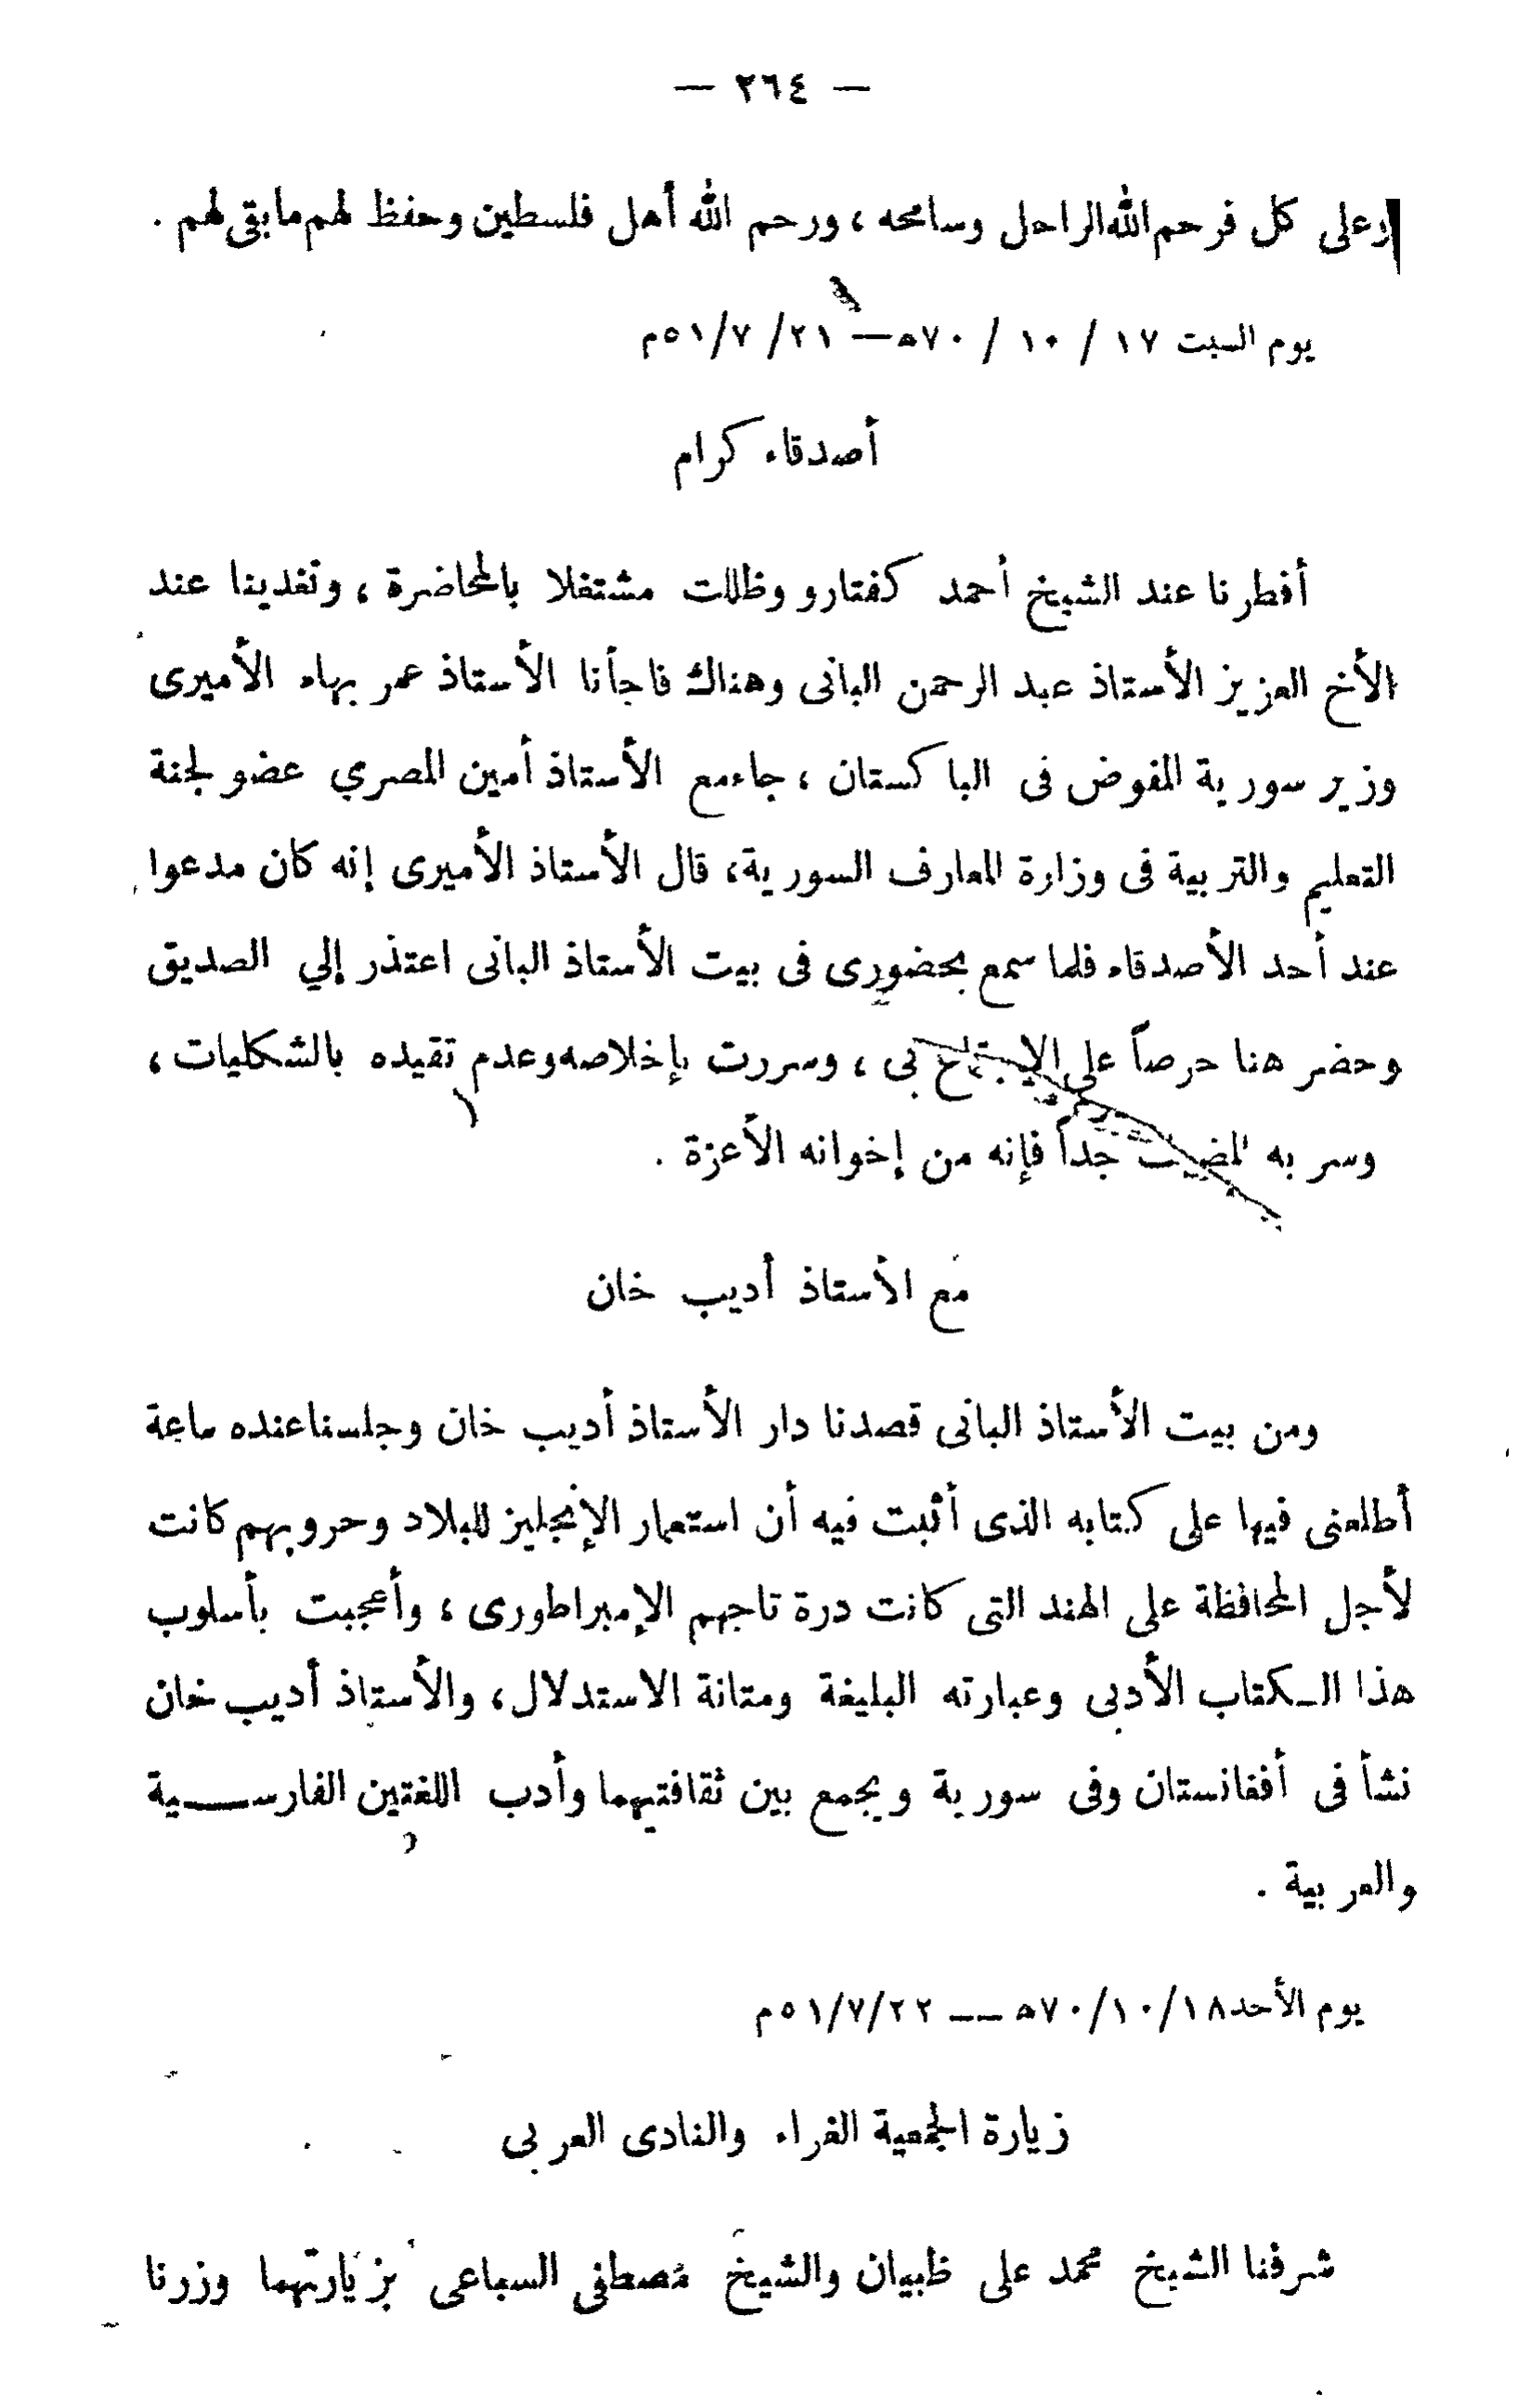 — ٢٦٤ —
وعلى كل فرحم الله الراحل وسامحه ، ورحم الله أهل فلسطين وحفظ لهم ما بقى لهم .
يوم السبت ١٧ / ١٠ / ٧٠هـ — ٢١/ ٥١/٧م
أصدقاء كرام
أفطرنا عند الشيخ أحمد كفتارو وظللت مشتغلا بالمحاضرة ، وتغدينا عند
الأخ العزيز الأستاذ عبد الرحمن البانى وهناك فاجأنا الأستاذ عمر بهاء الأميرى
وزير سورية المفوض فى الباكستان ، جاء مع الأستاذ أمين المصري عضو لجنة
التعليم والتربية فى وزارة المعارف السورية، قال الأستاذ الأميرى إنه كان مدعوا
عند أحد الأصدقاء فلما سمع بحضورى فى بيت الأستاذ البانى اعتذر إلي الصديق
وحضر هنا حرصاً على الاجتماع بى ، وسررت بإخلاصه وعدم تقيده بالشكليات ،
وسر به المضيف جداً فإنه من إخوانه الأعزة .
مع الأستاذ أديب خان
ومن بيت الأستاذ البانى قصدنا دار الأستاذ أديب خان وجلسنا عنده ساعة
أطلعنى فيها على كتابه الذى أثبت فيه أن استعمار الإنجليز للبلاد وحروبهم كانت
لأجل المحافظة على الهند التى كانت درة تاجهم الإمبراطورى ، وأعجبت بأسلوب
هذا الكتاب الأدبى وعبارته البليغة ومتانة الاستدلال ، والأستاذ أديب خان
نشأ فى أفغانستان وفى سورية ويجمع بين ثقافتيهما وأدب اللغتين الفارسية
والعربية .
يوم الأحد ٧٠/١٠/١٨هـ — ٥١/٧/٢٢م
زيارة الجمعية الغراء والنادى العربى
شرفنا الشيخ محمد على ظبيان والشيخ مصطفى السباعى بزيارتهما وزرنا